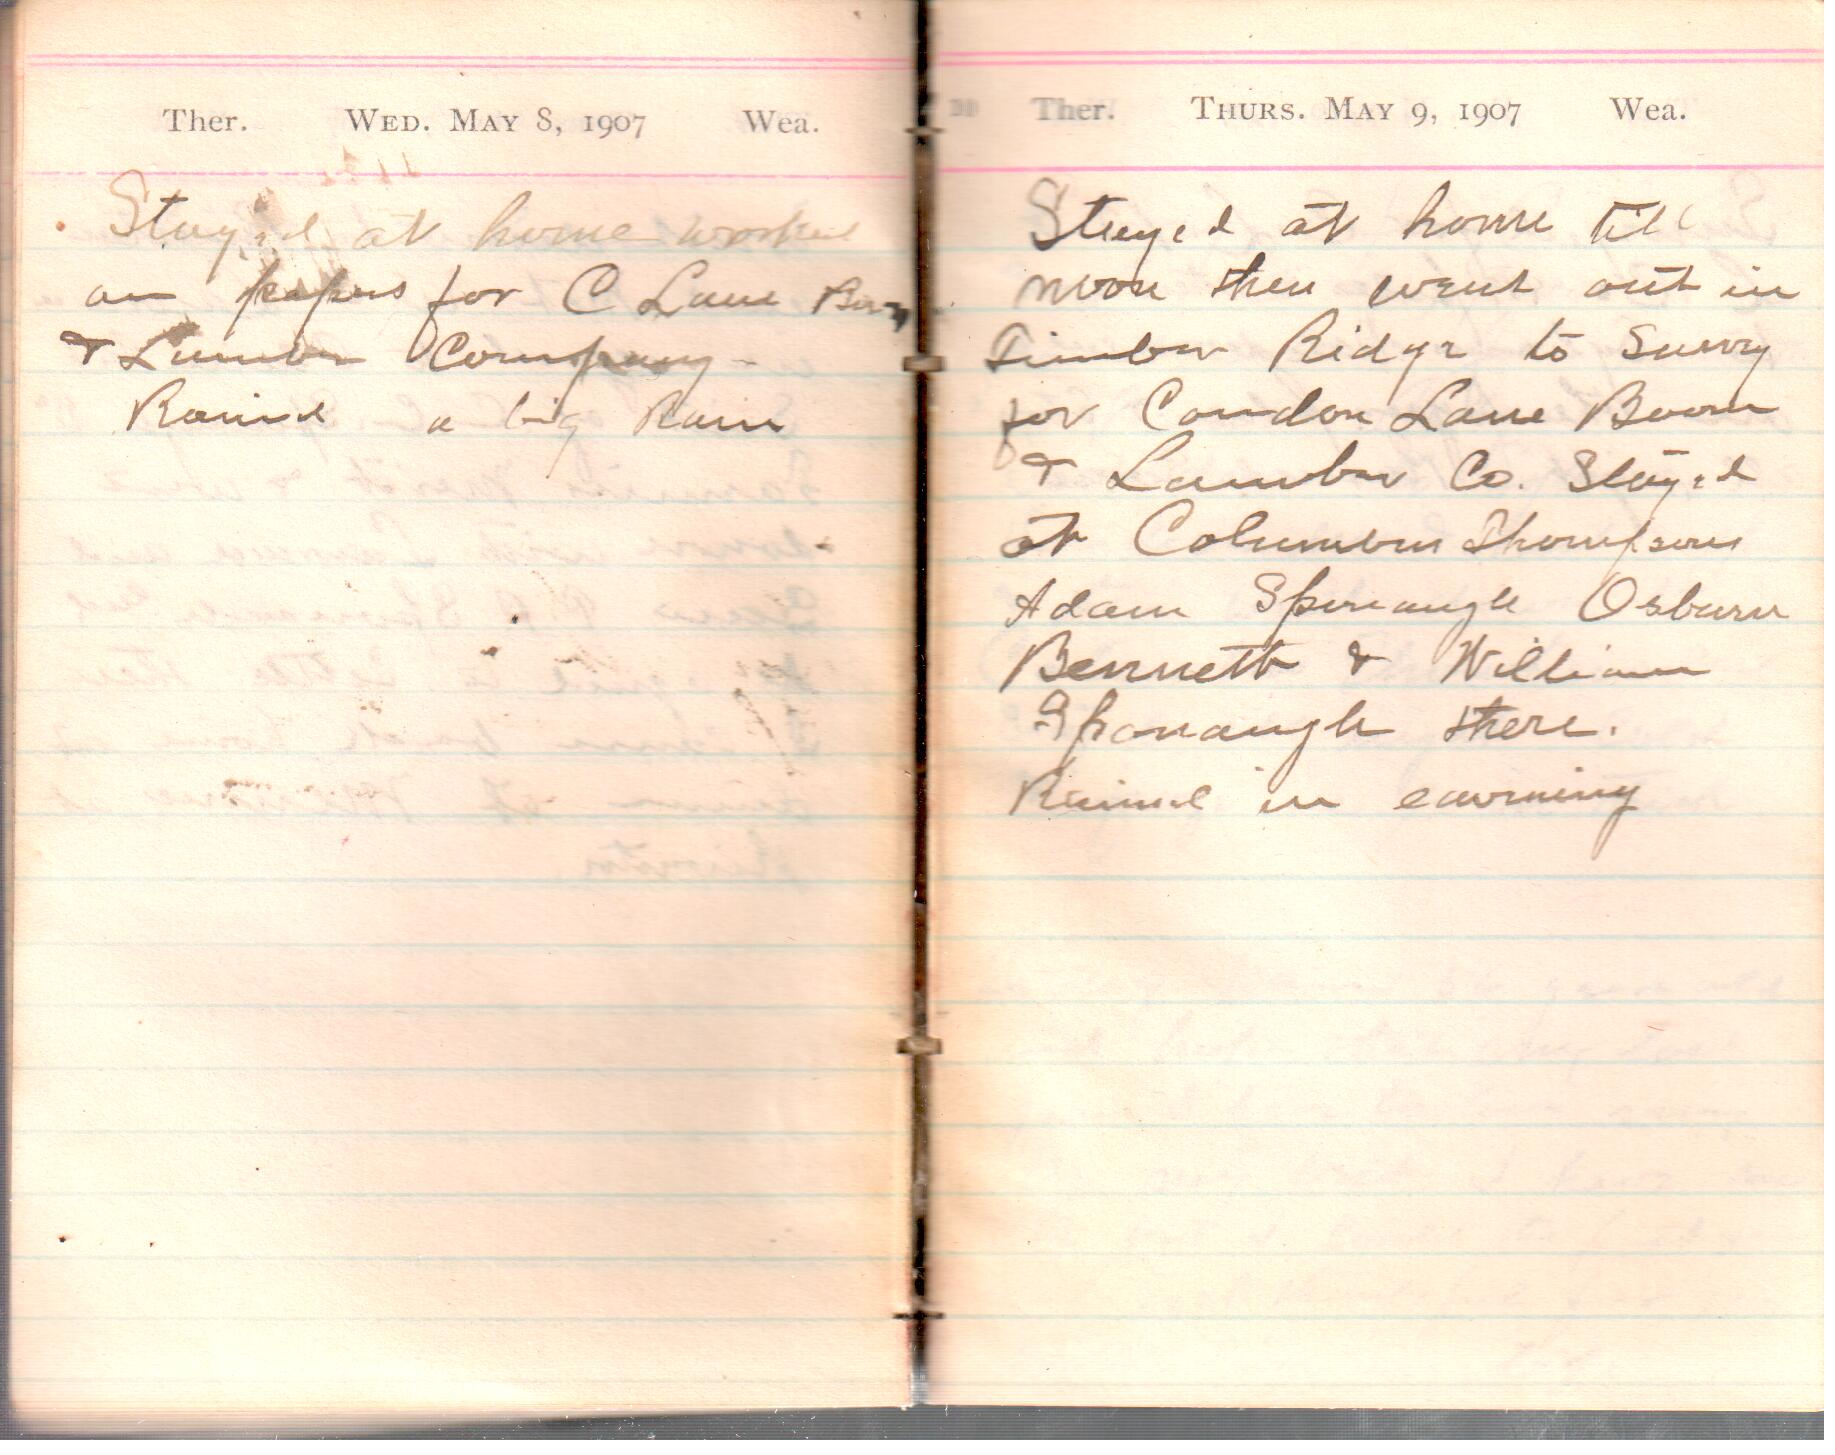 Ther. WED. MAY 8, 1907 Wea.
Stayed at home worked
on papers for C Lane Boom
& Lumber Company
Rained a big Rain
Ther. THURS. MAY 9, 1907 Wea.
Stayed at home till
noon then went out in
Timber Ridge to Survy
for Condon Lane Boom
& Lumber Co. Stayed
at Columbus Thompsons
Adam Sponaugle Osburn
Bennett & William
Sponaugle there.
Rained in evening